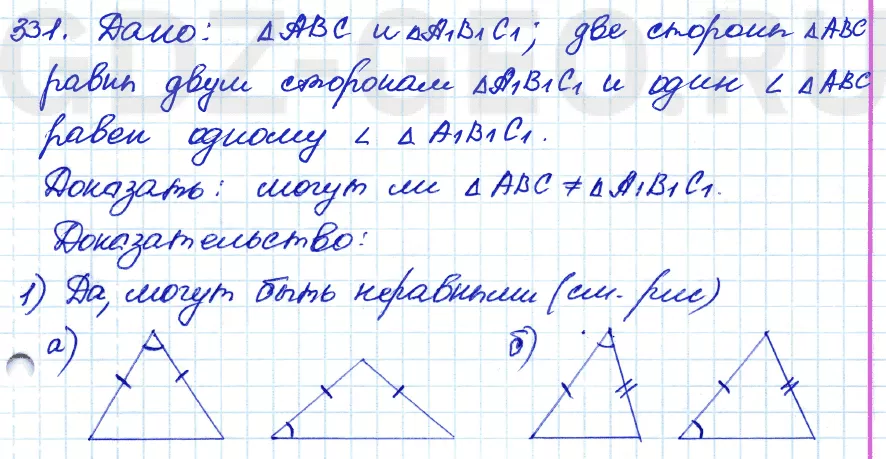 GDZ-GEO.RU
331. Дано: △ABC и △A₁B₁C₁; две стороны △ABC
равны двум сторонам △A₁B₁C₁ и один ∠ △ABC
равен одному ∠ △ A₁B₁C₁.
Доказать: могут ли △ABC ≠ △A₁B₁C₁.
Доказательство:
1) Да, могут быть неравными (см. рис)
а) б)